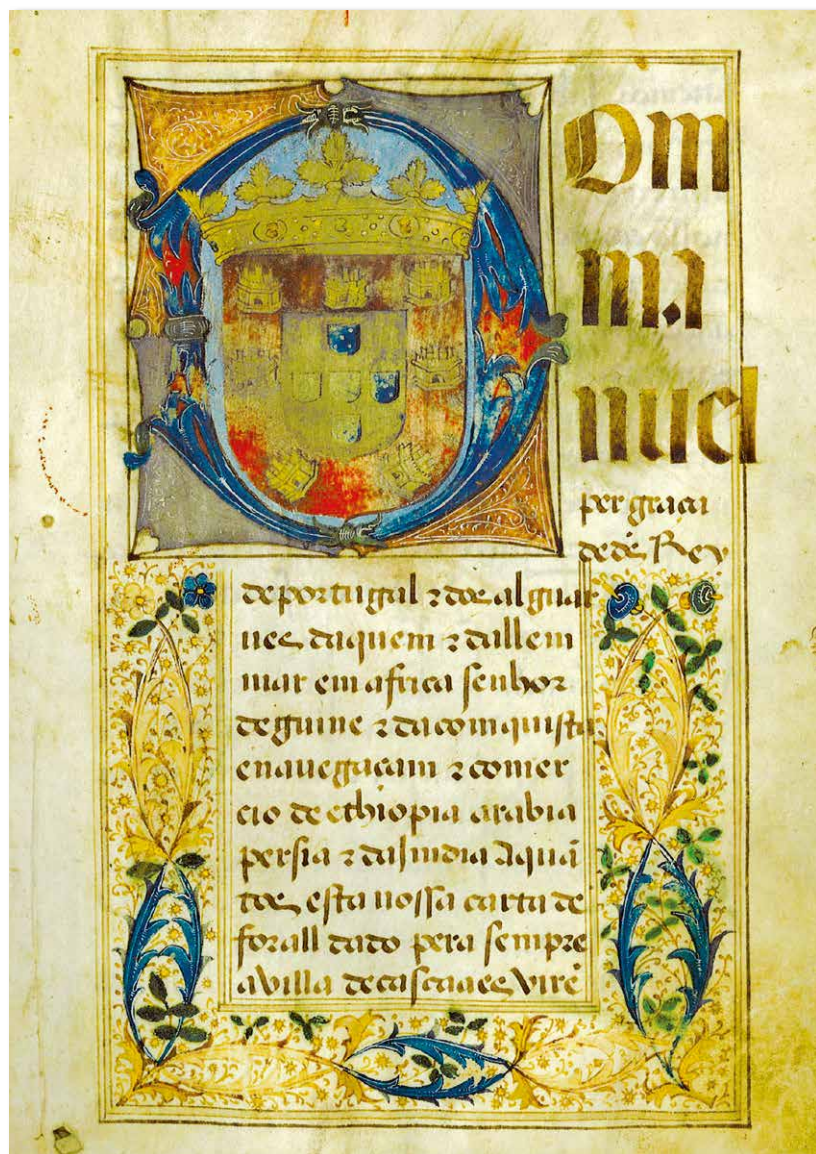 Dom
ma
nuel
per graça
de ds̃ Rey
de portugal ⁊ dos alguar
ues daquem ⁊ dallem
mar em africa senhor
de guine ⁊ da comquista
enauegaçam ⁊ comer
cio de ethiopia arabia
persia ⁊ da Jndia A quã
tos esta nossa carta de
forall dado pera sempre
a villa de cascaaes Virẽ